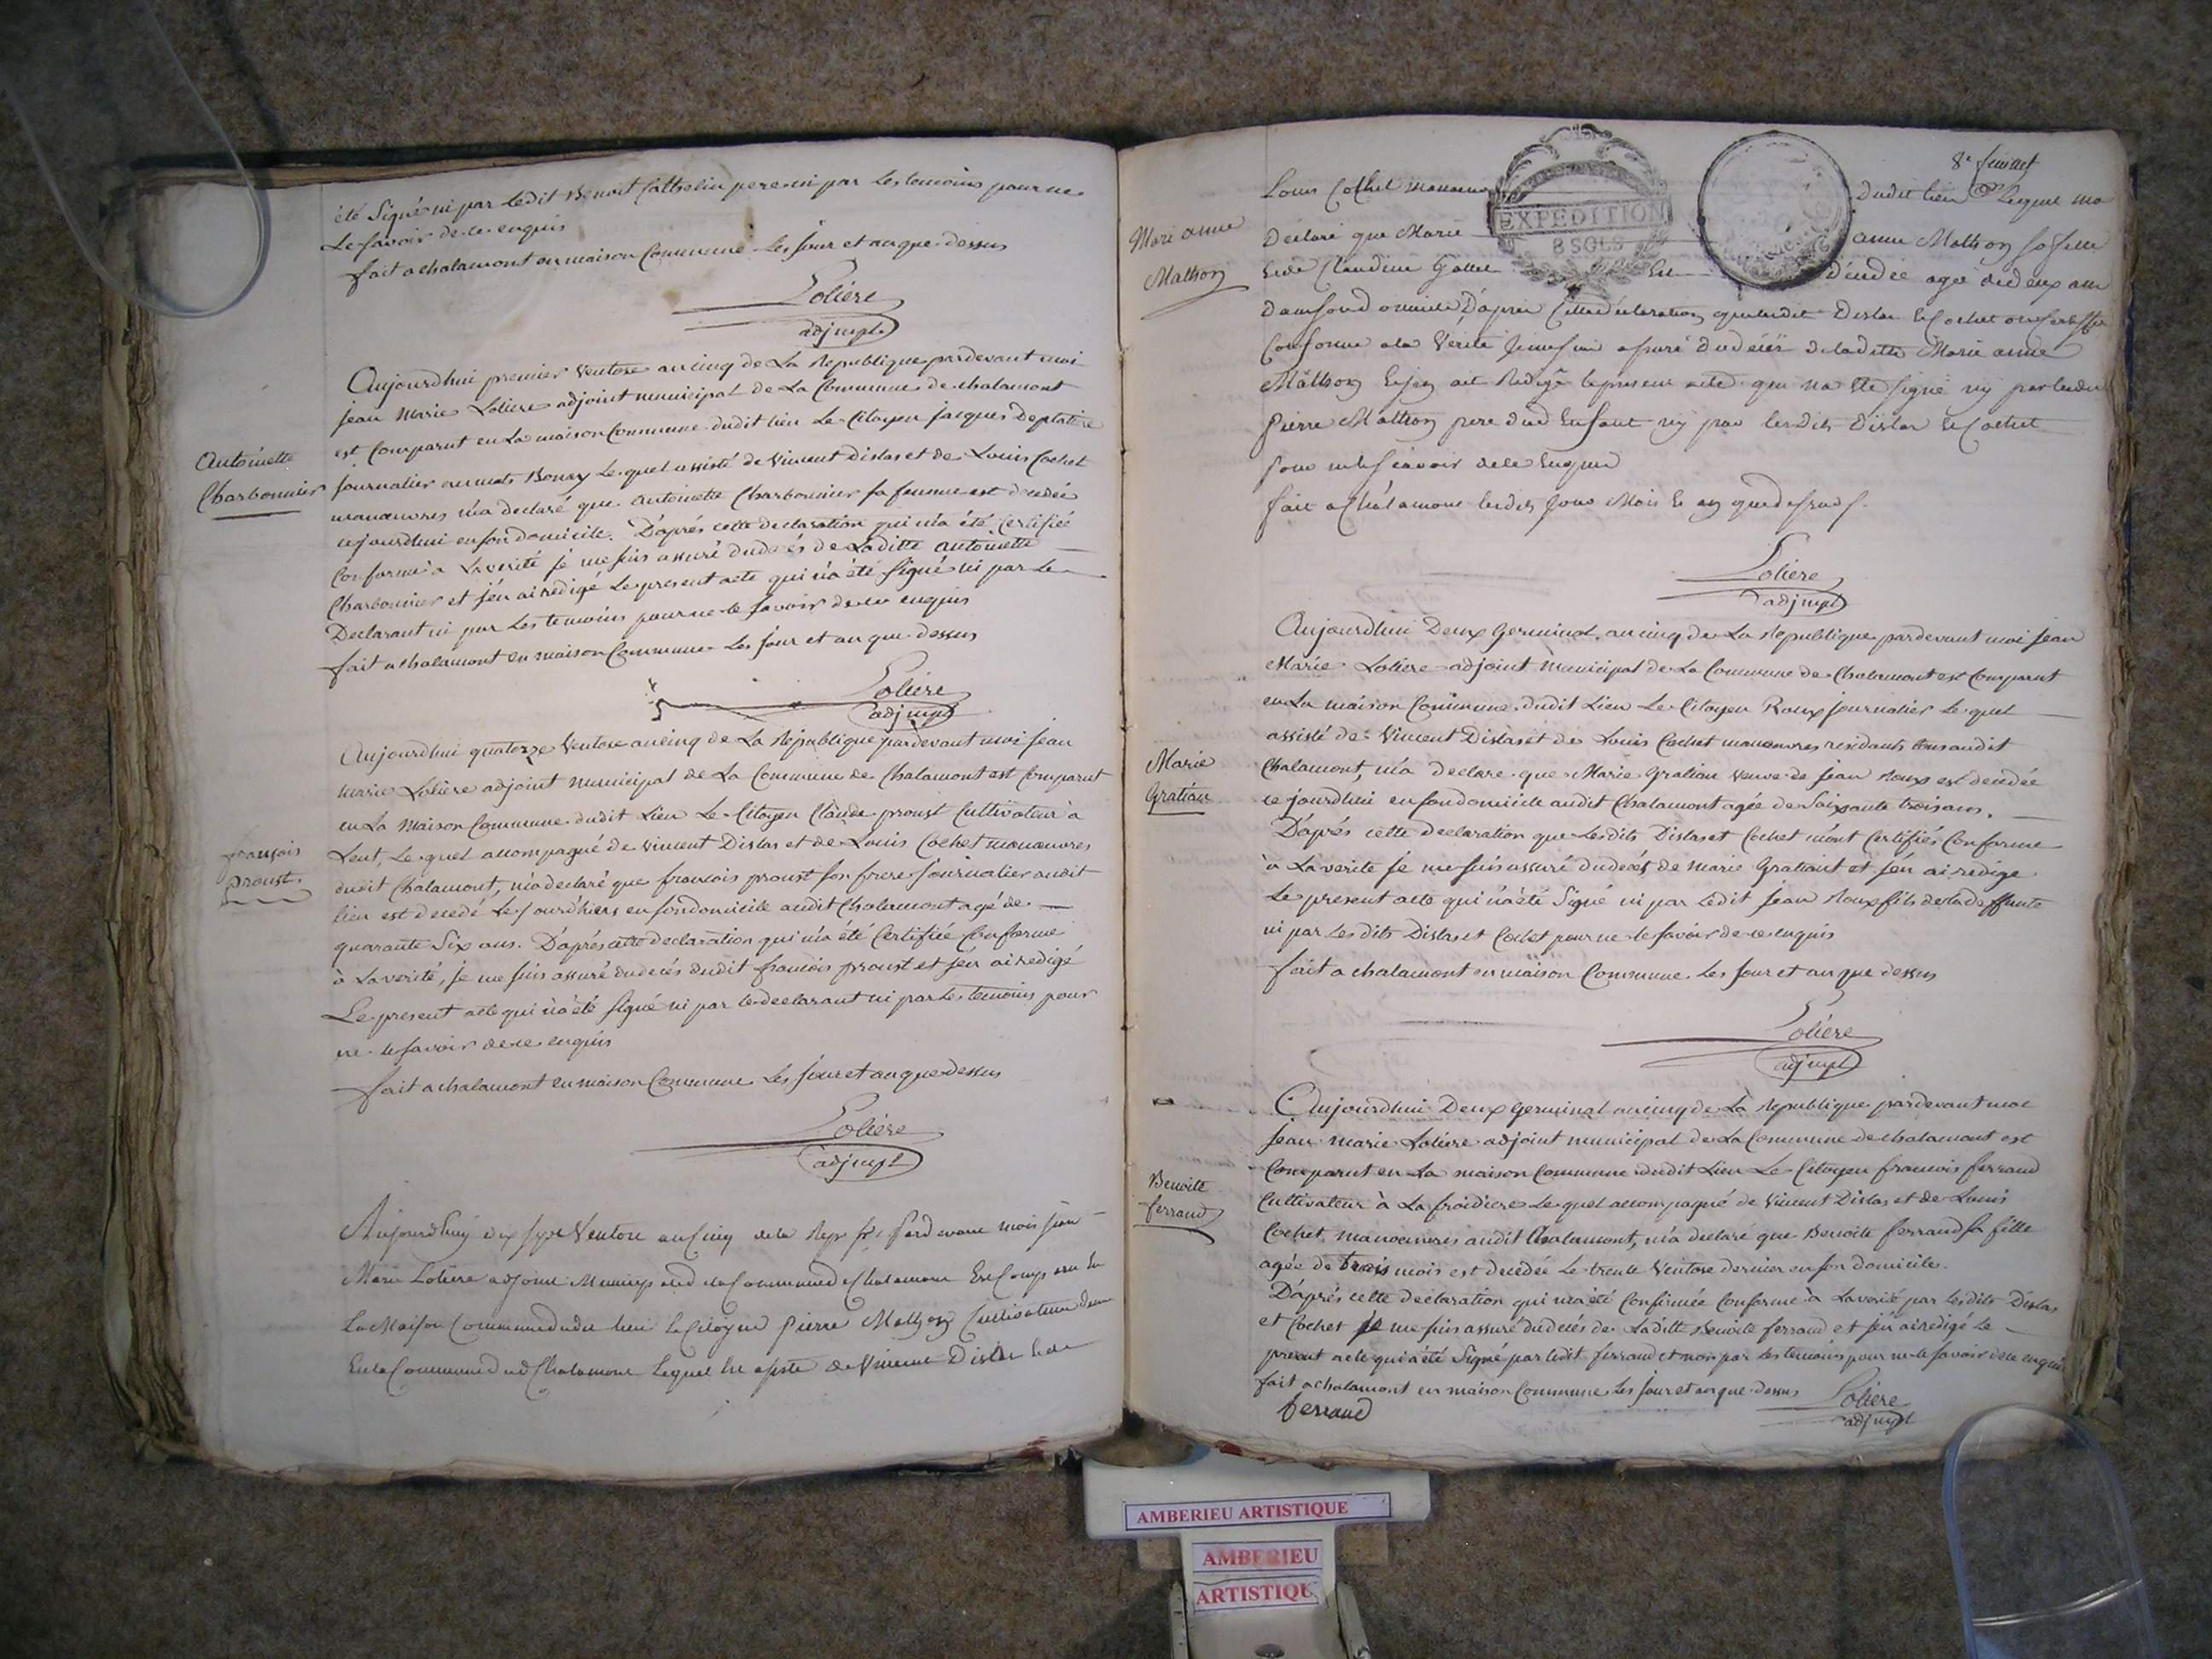 été Signé ni par ledit Benoit Cathelin pere ni par Les temoins pour ne
Le Savoir de ce enquis
fait a chalamont en maison Commune Les Jour et an que dessus
Loliere
adj mpl
Antoinette
Charbonnier
Aujourdhui premier Ventose an cinq de La Republique pardevant moi
Jean Marie Loliere adjoint municipal de La Commune de chalamont
est Comparut en La maison Commune dudit lieu Le Citoyen jacques
Journalier au mats Le quel assisté de Vincent Dislas et de Louis Cochet
manœuvres m'a declaré que antoinette Charbonnier sa femme est decedée
cejourdhui en son domicile. D'aprés cette declaration qui m'a été Certifiée
Conforme à La verité je me suis assuré du decés de Laditte antoinette
Charbonnier et j'en ai redigé Le present acte qui n'a été signé ni par Le
Declarant ni par Les temoins pour ne le Savoir de ce enquis
fait a chalamont en maison Commune Les Jour et an que dessus
Loliere
adj mpl
françois
proust.
Aujourdhui quatorze Ventose an cinq de La Republique pardevant moi Jean
Marie Loliere adjoint municipal de La Commune de Chalamont est Comparut
en La Maison Commune dudit Lieu Le Citoyen Claude proust Cultivateur à
Lent, Le quel accompagné de Vincent Dislas et de Louis Cochet manœuvres
dudit Chalamont, m'a declaré que francois proust son frere Journalier audit
lieu est decedé Le jourd'hiers en son domicile audit Chalamont agé de
quarante Six ans. D'aprés cette declaration qui m'a été Certifiée Conforme
à La verité, je me suis assuré du decés dudit francois proust et j'en ai redigé
Le present acte qui n'a été signé ni par le declarant ni par Les temoins pour
ne le Savoir de ce enquis
fait a chalamont en maison Commune Les jour et an que dessus
Loliere
adj mpl
Aujourdhuy dix Sept Ventose an Cinq de la Rep fr pardevant mois jean
Marie Loliere adjoint Municip de la Commune de Chalamont Est Comparu En
La Maison Commune dudu lieu le Citoyen Pierre Mathon Cultivateur
En la Commune dud Chalamont lequel de Vincent Dislas & de
8e feuillet
Mari anne
Mathon
Louis Cochet Manoeuv dudit lieu Lequel ma
EXPEDITION
8 SOLS
Declaré que Marie anne Mathon sa fille
& de Claudine Est Décédée agée de deux ans
dans son domicile D'apres Cette declaration que Dislas & Cochet
Conforme a la Verité je me suis assuré du décés de laditte Marie anne
Mathon & jen ait Redigé le present acte qui na Eté signé ny par
Pierre Mathon pere dud Enfant ny par lesdits Dislas & Cochet
pour ne le scavoir de ce Enquis
fait a Chalamont lesdits Jour Mois & an que dessus
Loliere
adj mpl
Marie
Gratian
Aujourdhui Deux Germinal an cinq de La Republique pardevant moi Jean
Marie Loliere adjoint municipal de La Commune de Chalamont est Comparut
en La maison Commune dudit Lieu Le Citoyen Roux journalier Le quel
assisté de Vincent Dislas et de Louis Cochet manœuvres residants tous audit
Chalamont, m'a declare que Marie Gratian veuve de Jean Roux est decedée
ce jourdhui en son domicile audit Chalamont agée de Soixante trois ans.
D'aprés cette declaration que Lesdits Dislas et Cochet m'ont Certifiés Conforme
à La verite je me suis assuré du decés de Marie Gratiant et j'en ai redigé
Le present acte qui n'a été Signé ni par Ledit Jean Roux fils de La deffunte
ni par Les dits Dislas et Cochet pour ne le savoir de ce enquis
fait a chalamont en maison Commune Les Jour et an que dessus
Loliere
adj mpl
Benoite
ferrand
Aujourdhui Deux germinal an cinq de La Republique pardevant moi
Jean Marie Loliere adjoint municipal de La Commune de chalamont est
Comparut en La maison Commune dudit Lieu Le Citoyen francois ferrand
Cultivateur à La froidiere Le quel accompagné de Vincent Dislas et de Louis
Cochet, manœuvres audit Chalamont, m'a declaré que Benoite ferrand sa fille
agée de trois mois est decedée Le trente Ventose dernier en son domicile.
D'aprés cette declaration qui m'a été Confirmée Conforme à La verité par Lesdits Dislas
et Cochet je me suis assuré du decés de Laditte Benoite ferrand et j'en ai redigé Le
present acte qui a été Signé par ledit ferrand et non par Les temoins pour ne le savoir de ce enquis
fait a chalamont en maison Commune Les jour et an que dessus
Loliere
adj mpl
ferrand
AMBERIEU ARTISTIQUE
AMBERIEU
ARTISTIQU